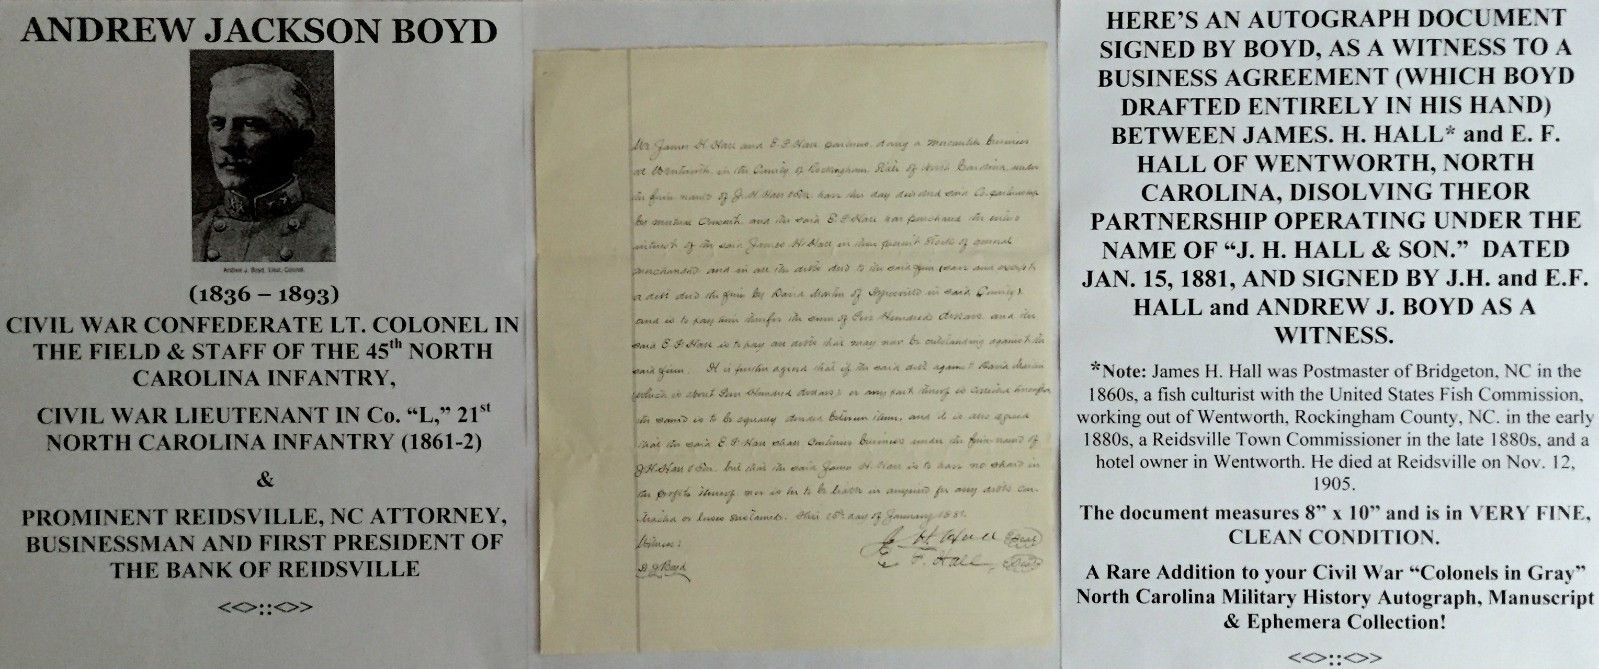 ANDREW JACKSON BOYD
Andrew J. Boyd, Lieut. Colonel.
(1836 – 1893)
CIVIL WAR CONFEDERATE LT. COLONEL IN
THE FIELD & STAFF OF THE 45th NORTH
CAROLINA INFANTRY,
CIVIL WAR LIEUTENANT IN Co. “L,” 21st
NORTH CAROLINA INFANTRY (1861-2)
&
PROMINENT REIDSVILLE, NC ATTORNEY,
BUSINESSMAN AND FIRST PRESIDENT OF
THE BANK OF REIDSVILLE
<<>::<>>
James H. Hall and E F Hall partners doing a mercantile business
at Wentworth in the County of Rockingham State of North Carolina under
the firm name of J. H. Hall & Son have this day dissolved said Co-partnership
by mutual consent and the said E F Hall has purchased the entire
interest of the said James H. Hall in their present stock of general
merchandise and in all the debts due to the said firm (save and except
a debt due the firm by David of in said County)
and is to pay him therefor the sum of Hundred dollars and the
said E F Hall is to pay all debts that may now be outstanding against the
said firm. It is further agreed that if the said debt against David
which is about Hundred dollars or any part thereof is collected
the same is to be equally divided between them, and it is also agreed
that the said E F Hall shall continue business under the firm name of
J. H. Hall & Son but that the said James H. Hall is to have no share in
the profits thereof nor is he to be liable in any for any debts con-
tracted or losses sustained. This 15th day of January 1881.
Witness:
J H Hall (Seal)
A J Boyd
E. F. Hall (Seal)
HERE’S AN AUTOGRAPH DOCUMENT
SIGNED BY BOYD, AS A WITNESS TO A
BUSINESS AGREEMENT (WHICH BOYD
DRAFTED ENTIRELY IN HIS HAND)
BETWEEN JAMES. H. HALL* and E. F.
HALL OF WENTWORTH, NORTH
CAROLINA, DISOLVING THEOR
PARTNERSHIP OPERATING UNDER THE
NAME OF “J. H. HALL & SON.” DATED
JAN. 15, 1881, AND SIGNED BY J.H. and E.F.
HALL and ANDREW J. BOYD AS A
WITNESS.
*Note: James H. Hall was Postmaster of Bridgeton, NC in the
1860s, a fish culturist with the United States Fish Commission,
working out of Wentworth, Rockingham County, NC. in the early
1880s, a Reidsville Town Commissioner in the late 1880s, and a
hotel owner in Wentworth. He died at Reidsville on Nov. 12,
1905.
The document measures 8” x 10” and is in VERY FINE,
CLEAN CONDITION.
A Rare Addition to your Civil War “Colonels in Gray”
North Carolina Military History Autograph, Manuscript
& Ephemera Collection!
<<>::<>>